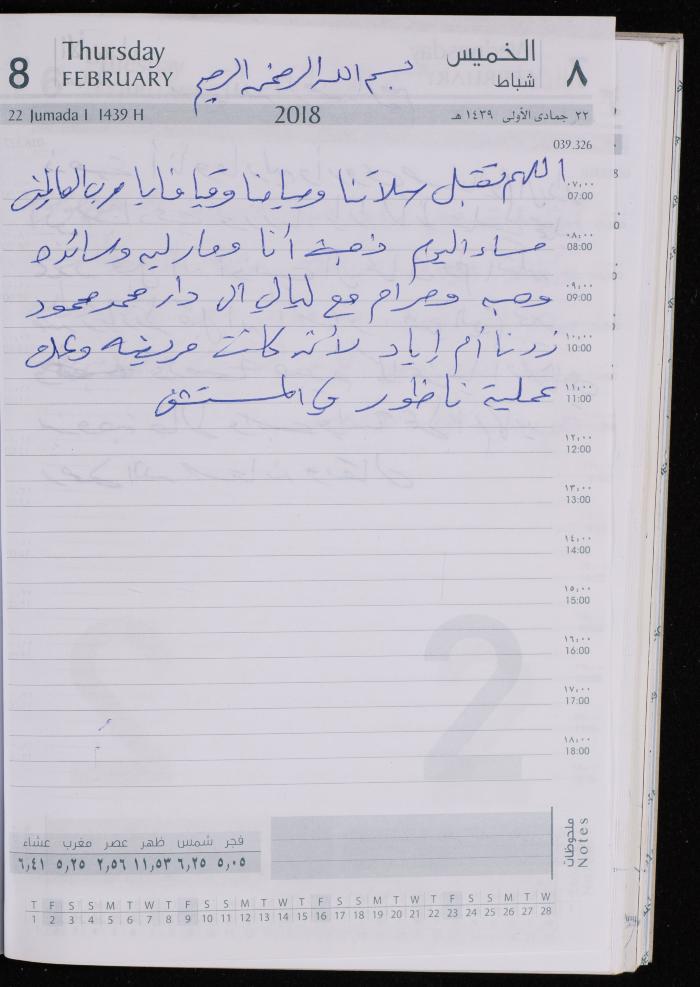 8 Thursday FEBRUARY
بسم الله الرحمن الرحيم
الخميس شباط ٨
22 Jumada I 1439 H 2018 ٢٢ جمادى الأولى ١٤٣٩ هـ
039.326
اللهم تقبل سلاتنا وصيامنا وقيامنا يا رب العالمين
٠٧,٠٠ 07:00
مساء اليوم ذهبت أنا و وسائده
٠٨,٠٠ 08:00
وهبه ومرام مع ليالي ال دار محمد محمود
٠٩,٠٠ 09:00
زرنا أم إياد لأنه كانت مريضه وعمله
١٠,٠٠ 10:00
عملية ناظور في المستشفى
١١,٠٠ 11:00
١٢,٠٠ 12:00
١٣,٠٠ 13:00
١٤,٠٠ 14:00
١٥,٠٠ 15:00
١٦,٠٠ 16:00
١٧,٠٠ 17:00
١٨,٠٠ 18:00
2
ملحوظات Notes
فجر شمس ظهر عصر مغرب عشاء
٥,٠٥ ٦,٢٥ ١١,٥٣ ٢,٥٦ ٥,٢٥ ٦,٤١
T F S S M T W T F S S M T W T F S S M T W T F S S M T W
1 2 3 4 5 6 7 8 9 10 11 12 13 14 15 16 17 18 19 20 21 22 23 24 25 26 27 28